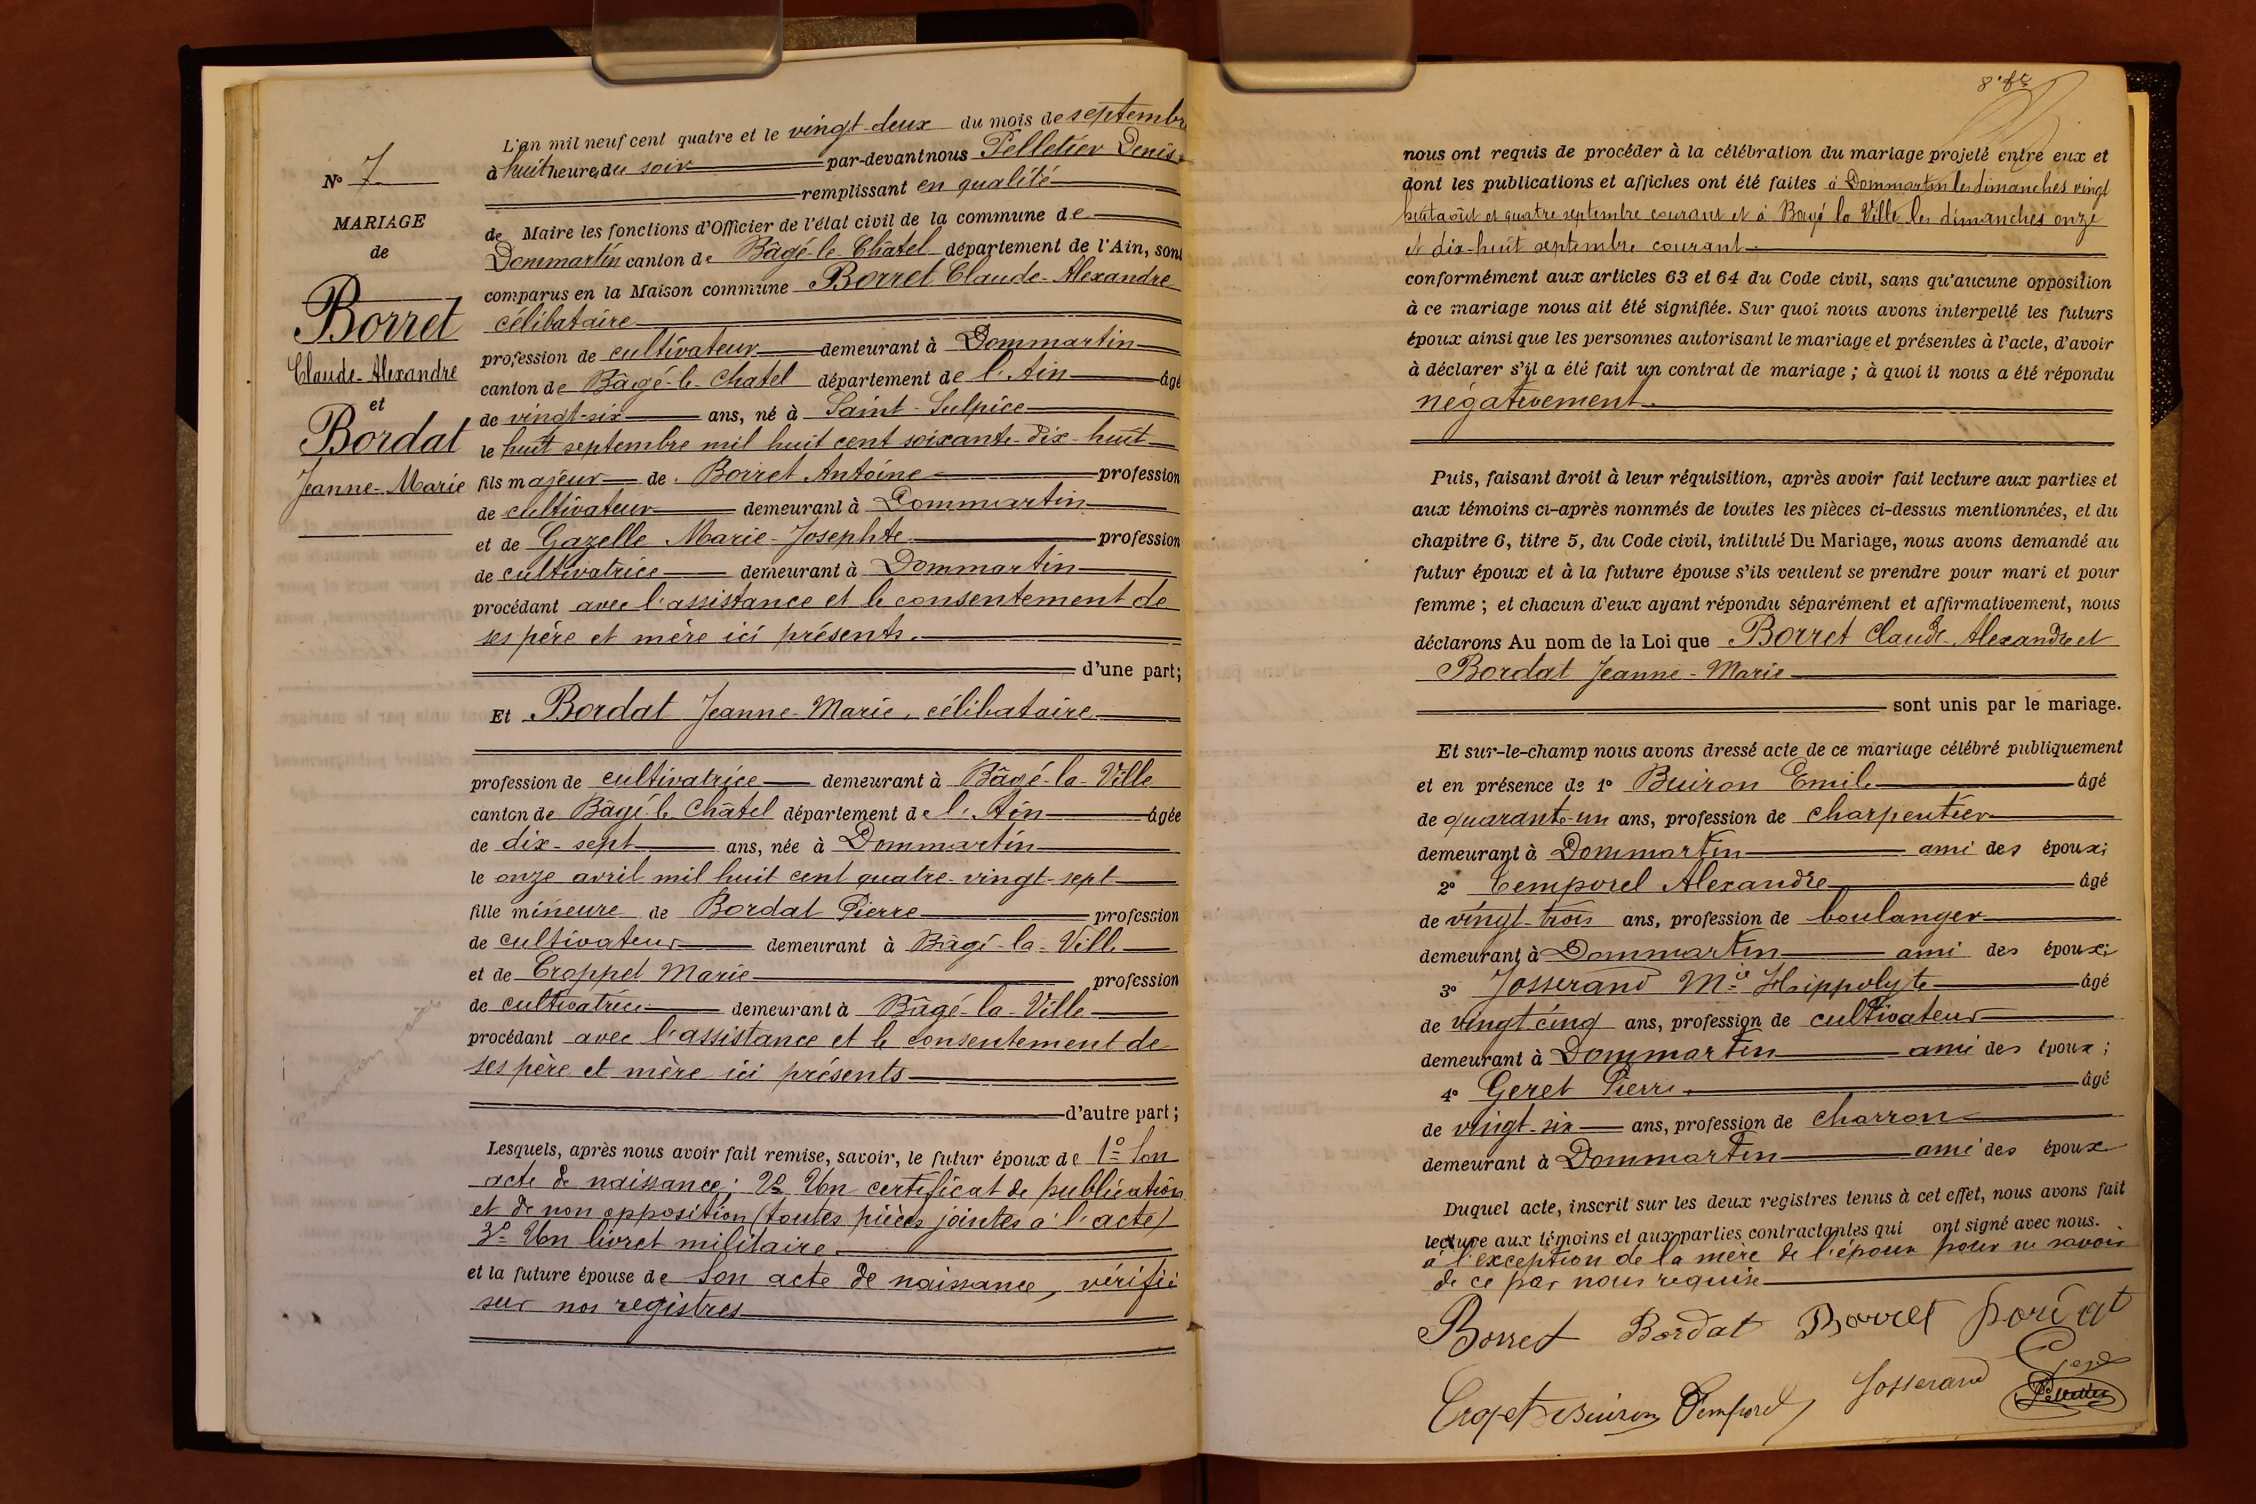 N° 7
MARIAGE
de
Borret
Claude-Alexandre
et
Bordat
Jeanne-Marie
L'an mil neuf cent quatre et le vingt-deux du mois de septembre
à huit heures du soir par-devant nous Pelletier Denis
remplissant en qualité
de Maire les fonctions d'Officier de l'état civil de la commune de
Dommartin canton de Bâgé-le-Châtel département de l'Ain, sont
comparus en la Maison commune Borret Claude-Alexandre
célibataire
profession de cultivateur demeurant à Dommartin
canton de Bâgé-le-Chatel département de l'Ain âgé
de vingt-six ans, né à Saint-Sulpice
le huit septembre mil huit cent soixante-dix-huit
fils majeur de Borret Antoine profession
de cultivateur demeurant à Dommartin
et de Gazelle Marie-Josephte profession
de cultivatrice demeurant à Dommartin
procédant avec l'assistance et le consentement de
ses père et mère ici présents.
d'une part;
Et Bordat Jeanne-Marie, célibataire
profession de cultivatrice demeurant à Bâgé-la-Ville
canton de Bâgé-le-Châtel département de l'Ain âgée
de dix-sept ans, née à Dommartin
le onze avril mil huit cent quatre-vingt-sept
fille mineure de Bordat Pierre profession
de cultivateur demeurant à Bâgé-la-Ville
et de Croppet Marie profession
de cultivatrice demeurant à Bâgé-la-Ville
procédant avec l'assistance et le consentement de
ses père et mère ici présents
d'autre part;
Lesquels, après nous avoir fait remise, savoir, le futur époux de 1° Son
acte de naissance; 2° Un certificat de publication
et de non opposition (toutes pièces jointes à l'acte)
3° Un livret militaire.
et la future épouse de Son acte de naissance, vérifié
sur nos registres
nous ont requis de procéder à la célébration du mariage projeté entre eux et
dont les publications et affiches ont été faites à Dommartin les dimanches vingt
huit août et quatre septembre courant et à Bagé la Ville les dimanches onze
et dix-huit septembre courant
conformément aux articles 63 et 64 du Code civil, sans qu'aucune opposition
à ce mariage nous ait été signifiée. Sur quoi nous avons interpellé les futurs
époux ainsi que les personnes autorisant le mariage et présentes à l'acte, d'avoir
à déclarer s'il a été fait un contrat de mariage ; à quoi il nous a été répondu
négativement.
Puis, faisant droit à leur réquisition, après avoir fait lecture aux parties et
aux témoins ci-après nommés de toutes les pièces ci-dessus mentionnées, et du
chapitre 6, titre 5, du Code civil, intitulé Du Mariage, nous avons demandé au
futur époux et à la future épouse s'ils veulent se prendre pour mari et pour
femme ; et chacun d'eux ayant répondu séparément et affirmativement, nous
déclarons Au nom de la Loi que Borret Claude-Alexandre et
Bordat Jeanne-Marie
sont unis par le mariage.
Et sur-le-champ nous avons dressé acte de ce mariage célébré publiquement
et en présence de 1° Buiron Emile âgé
de quarante-un ans, profession de charpentier
demeurant à Dommartin ami des époux;
2° Temporel Alexandre âgé
de vingt-trois ans, profession de boulanger
demeurant à Dommartin ami des époux;
3° Josserand Mie Hippolyte âgé
de vingt cinq ans, profession de cultivateur
demeurant à Dommartin ami des époux;
4° Geret Pierre âgé
de vingt-six ans, profession de charron
demeurant à Dommartin ami des époux
Duquel acte, inscrit sur les deux registres tenus à cet effet, nous avons fait
lecture aux témoins et aux parties contractantes qui ont signé avec nous.
à l'exception de la mère de l'époux pour ne savoir
de ce par nous requise
Borret Bordat Borret
Cropet Buiron Temporel Josserand